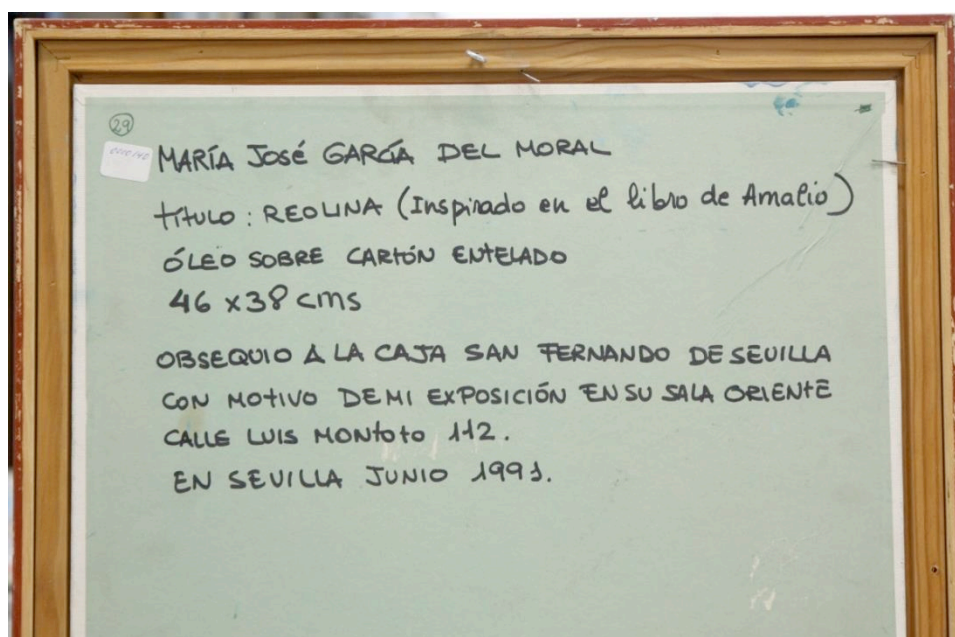 29
MARÍA JOSÉ GARCÍA DEL MORAL
TÍTULO: REOLINA (Inspirado en el libro de Amalio)
ÓLEO SOBRE CARTÓN ENTELADO
46 x 38 cms
OBSEQUIO A LA CAJA SAN FERNANDO DE SEVILLA
CON MOTIVO DE MI EXPOSICIÓN EN SU SALA ORIENTE
CALLE LUIS MONTOTO 112.
EN SEVILLA JUNIO 1991.